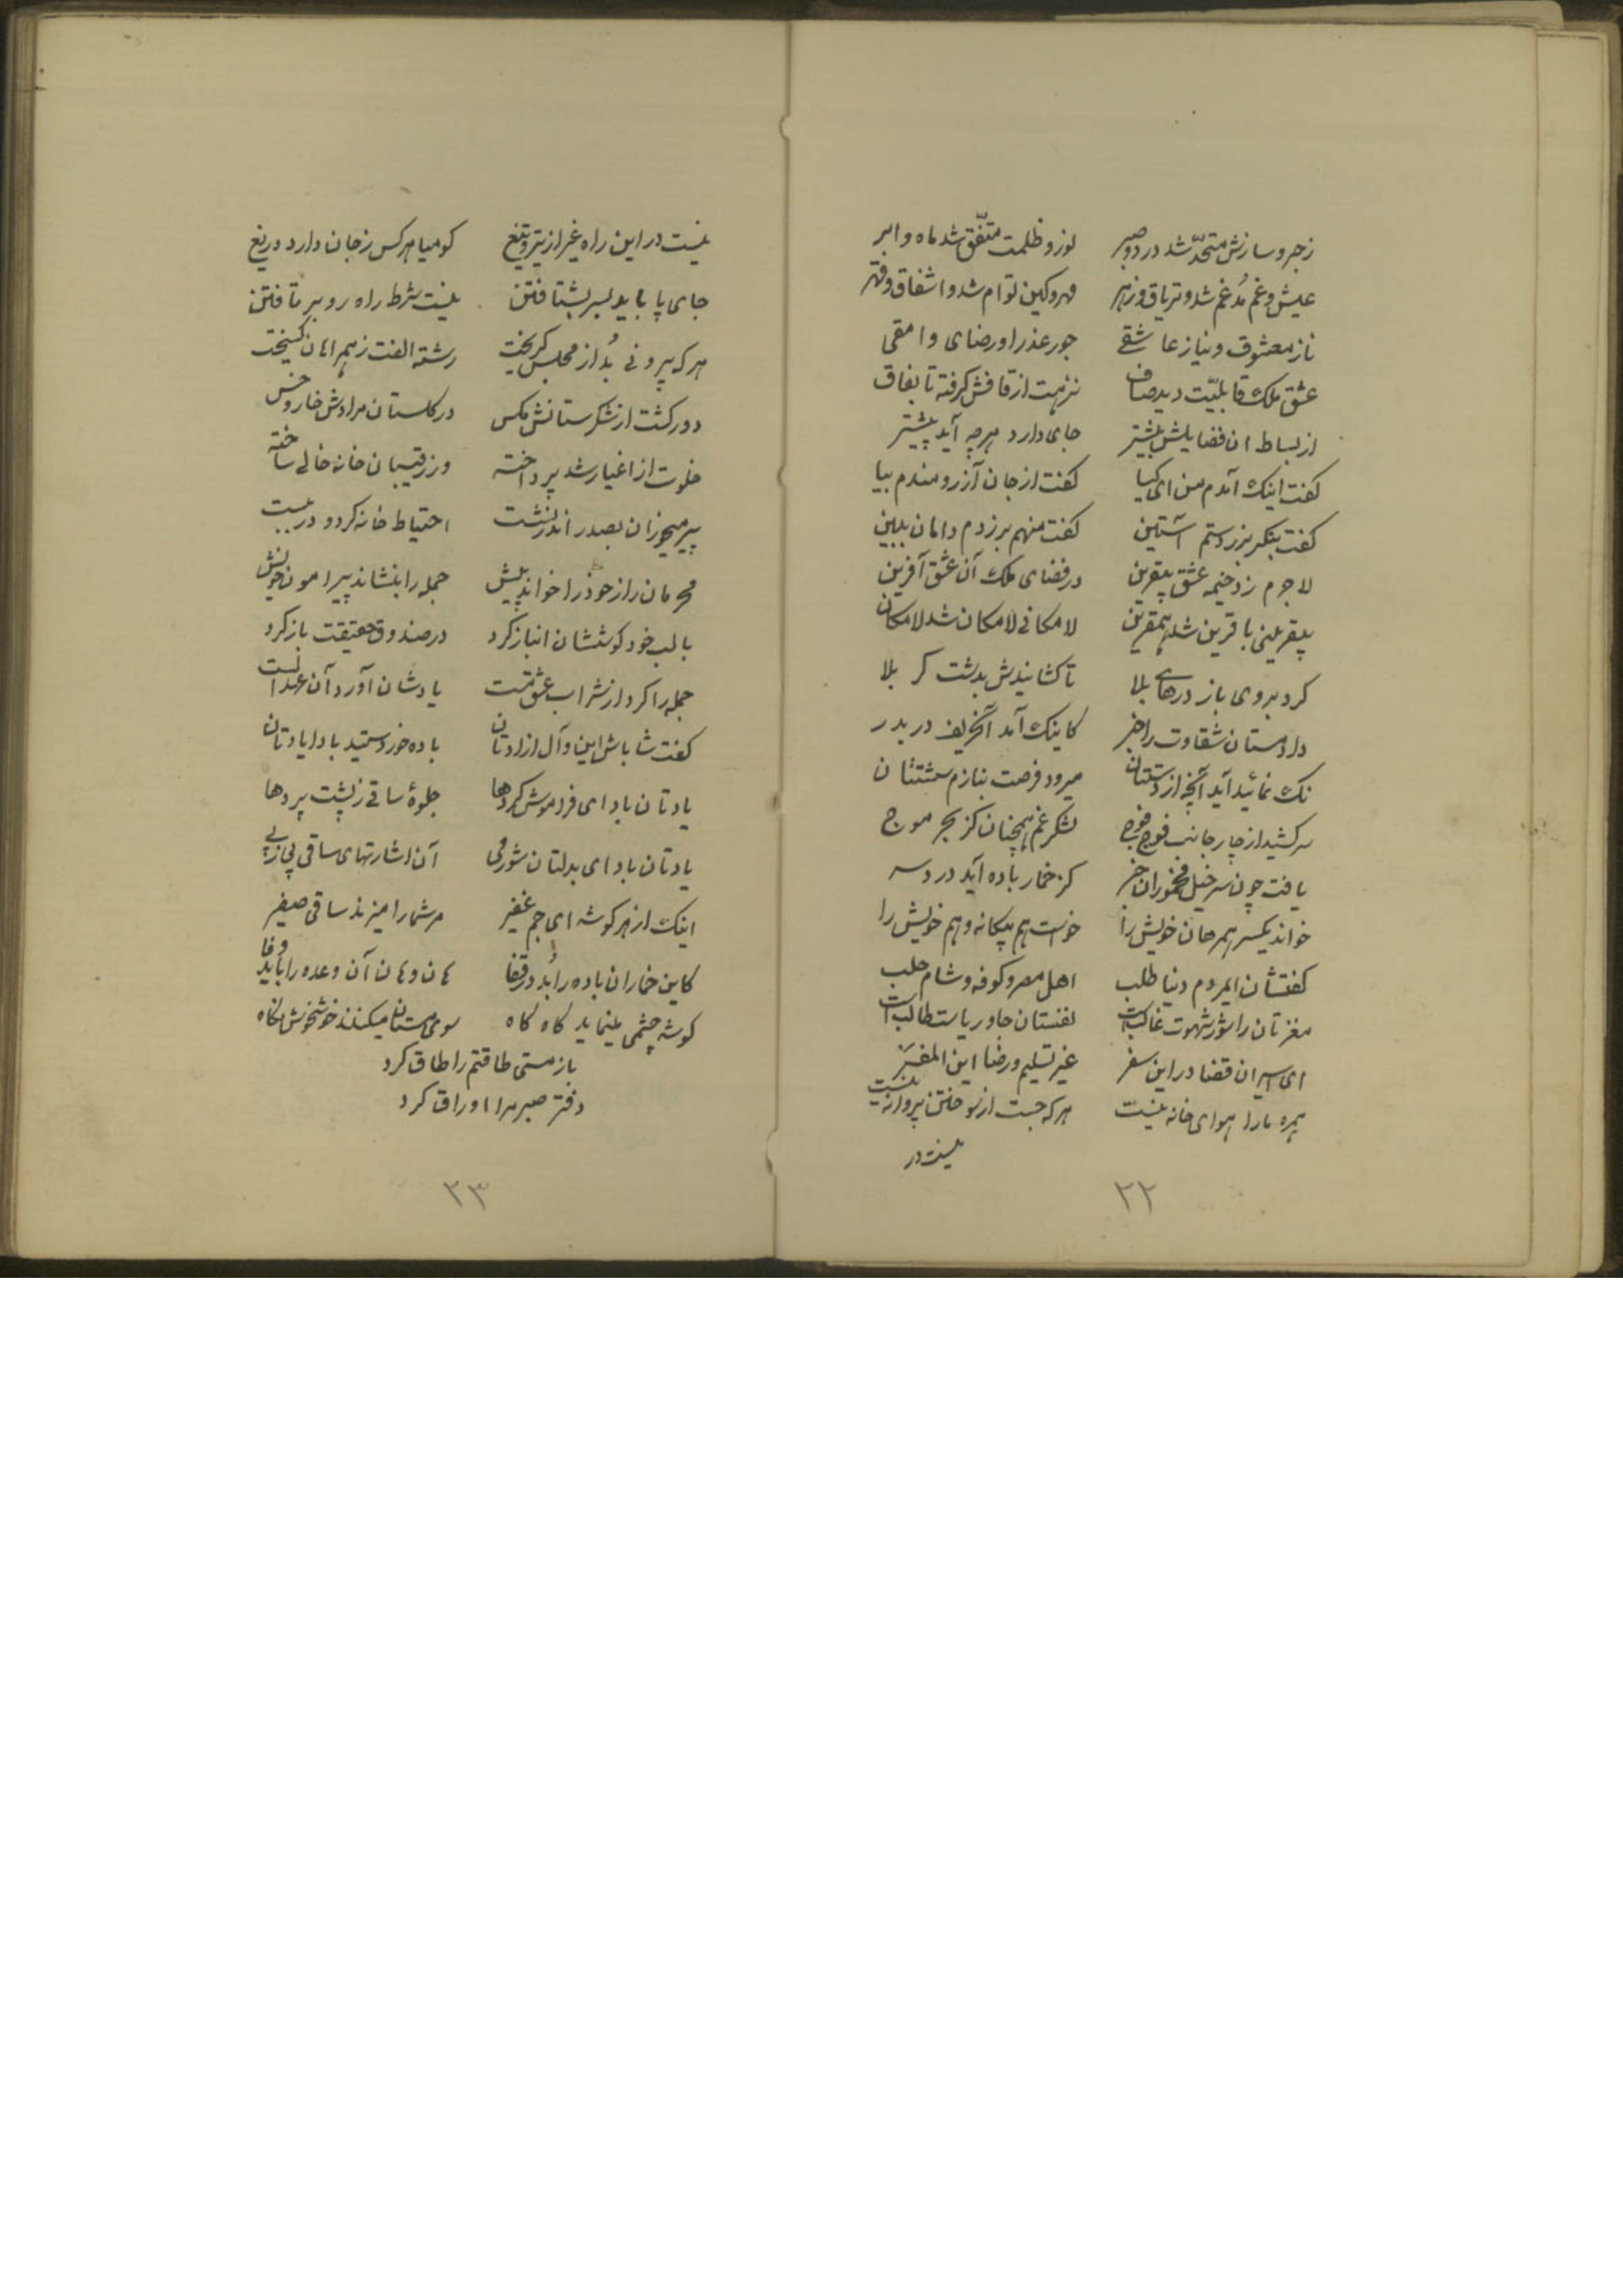 زجر و سازش متحد شد درد و صبر نور و ظلمت متفق شد ماه و ابر
عیش و غم مُدغم شد و تریاق و زهر مهر و کین توام شد و اشفاق و قهر
ناز معشوق و نیاز عاشقی جور عذرا و رضای وامقی
عشق ملک قابلیّت دید صاف نزهت از قافش گرفته تا بقاف
از بساط آن فضایش بیشتر جای دارد هرچه آید پیشتر
گفت اینک آمدم من ای کیا گفت از جان آرزومندم بیا
گفت بنگر بر زدستم آستین گفت منهم بر زدم دامان ببین
لاجرم زد خیمه عشق بیقرین در فضای ملک آن عشق آفرین
بیقرینی با قرین شد همقرین لامکانی لامکان شد لامکان
کرد بروی باز درهای بلا تا کشانیدش بدشت کربلا
داد مستان شقاوت را خبر کاینک آمد آنحریف در بدر
نک نمائید آید آنچه از دستتان میرود فرصت بنازم شستتان
سر کشید از چار جانب فوج فوج لشکر غم همچنان کز بحر موج
یافت چون سرخیل مخموران خبر کز خمار باده آید درد سر
خواند یکسر همرهان خویش را خواست هم بیگانه و هم خویش را
گفتشان ایمردم دنیا طلب اهل مصر و کوفه و شام حلب
مغزتان را شور شهوت غالبست نفستان جاه و ریاست طالب است
ای اسیران قضا در این سفر غیر تسلیم و رضا این المفر
همره ما را هوای خانه نیست هر که جست از سوختن پروانه نیست
نیست در
۲۲
نیست در این راه غیر از تیر و تیغ گو میا هرکس ز جان دارد دریغ
جای پا باید بسر بشتافتن نیست شرط راه رو بر تافتن
هرکه بیرونی بُد از مجلس گریخت رشته الفت ز همراهان گسیخت
دور گشت از شکرستانش مگس در گلستان مرادش خار و خس
خلوت از اغیار شد پرداخته وز رقیبان خانه خالی ساخته
پیر میخواران بصدر اندر نشست احتیاط خانه کرد و در ببست
محرمان راز خود را خواند پیش جمله را بنشاند پیرامون خویش
با لب خود گوششان انباز کرد در صندوق حقیقت باز کرد
جمله را کرد از شراب عشق مست یادشان آورد آن عهد الست
گفت شاباش این دل آزادتان باده خوردستید بادا یادتان
یادتان باد ای فراموش کردها جلوهٔ ساقی ز پشت پردها
یادتان باد ای بدلتان شور می آن اشارتهای ساقی پی ز پی
اینک از هر گوشه ای جم غفیر مر شما را میزند ساقی صفیر
کاین خماران باده را بُد در قفا هان و هان آن وعده را باید وفا
گوشه چشمی مینماید گاه گاه سوی مستان میکند خوشخوش نگاه
باز مستی طاقتم را طاق کرد
دفتر صبر مرا اوراق کرد
۲۳